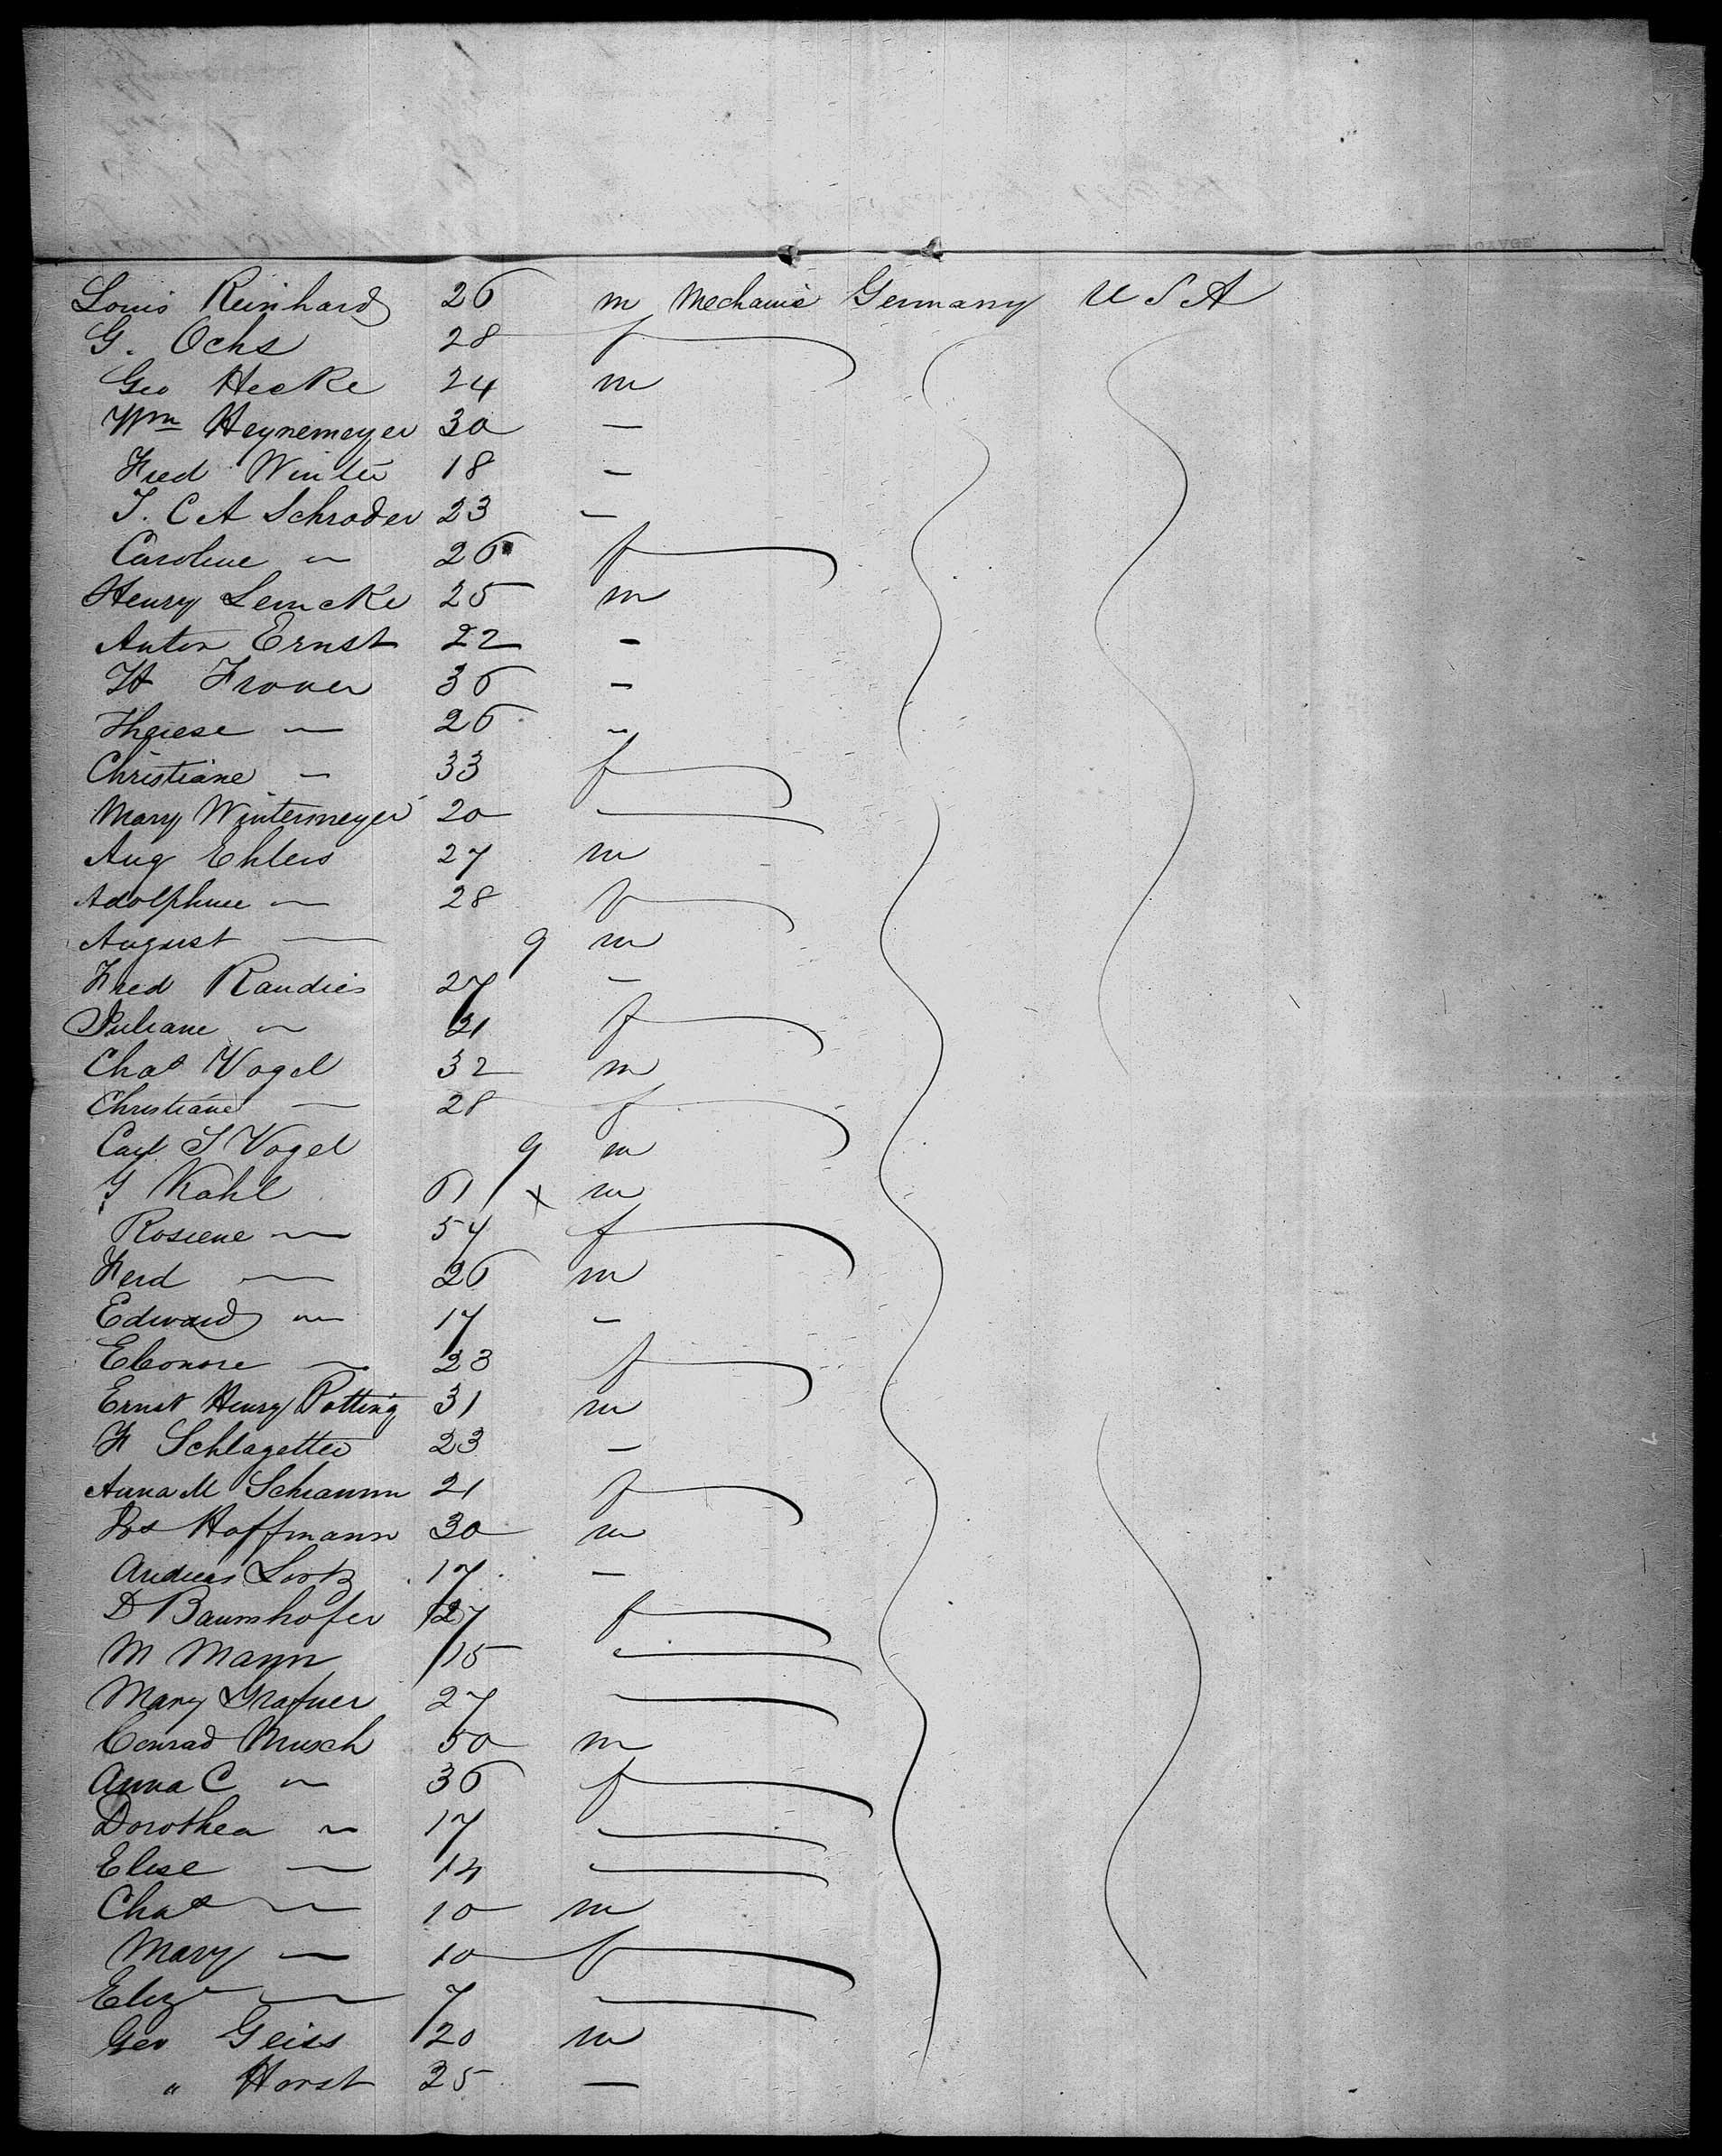 Louis Reinhard 26 m Mechanic Germany U S A
G. Ochs 28 f
Geo Hecke 24 m
Wm Heynemeyer 30 —
Fred Winter 18 —
J. C A Schroder 23 —
Caroline " 26 f
Henry Lemcke 25 m
Anton Ernst 22 -
H Froner 36 -
Therese — 26 -
Christiane — 33 f
Mary Wintermeyer 20 —
Aug Ehlers 27 m
Adolphine — 28 f
August — 9 m
Fred Randies 27 —
Juliane " 21 f
Chas Vogel 32 m
Christiane — 28 f
Carl J Vogel 9 m
J Kahl 61 x m
Rosiene — 54 f
Ferd — 26 m
Edward — 17 —
Eleonore — 23 f
Ernst Henry Potting 31 m
F Schlagetter 23 —
Anna M Schramm 21 f
Jos Hoffmann 30 m
Andreas 17 —
D Baumhofer 27 f
M Mann 15 —
Mary Grafner 27 —
Conrad Musch 50 m
Anna C " 36 f
Dorothea " 17 —
Elise — 14 —
Chas — 10 m
Mary — 10 f
Eliza — 7 —
Geo Geiss 20 m
" Horst 25 —